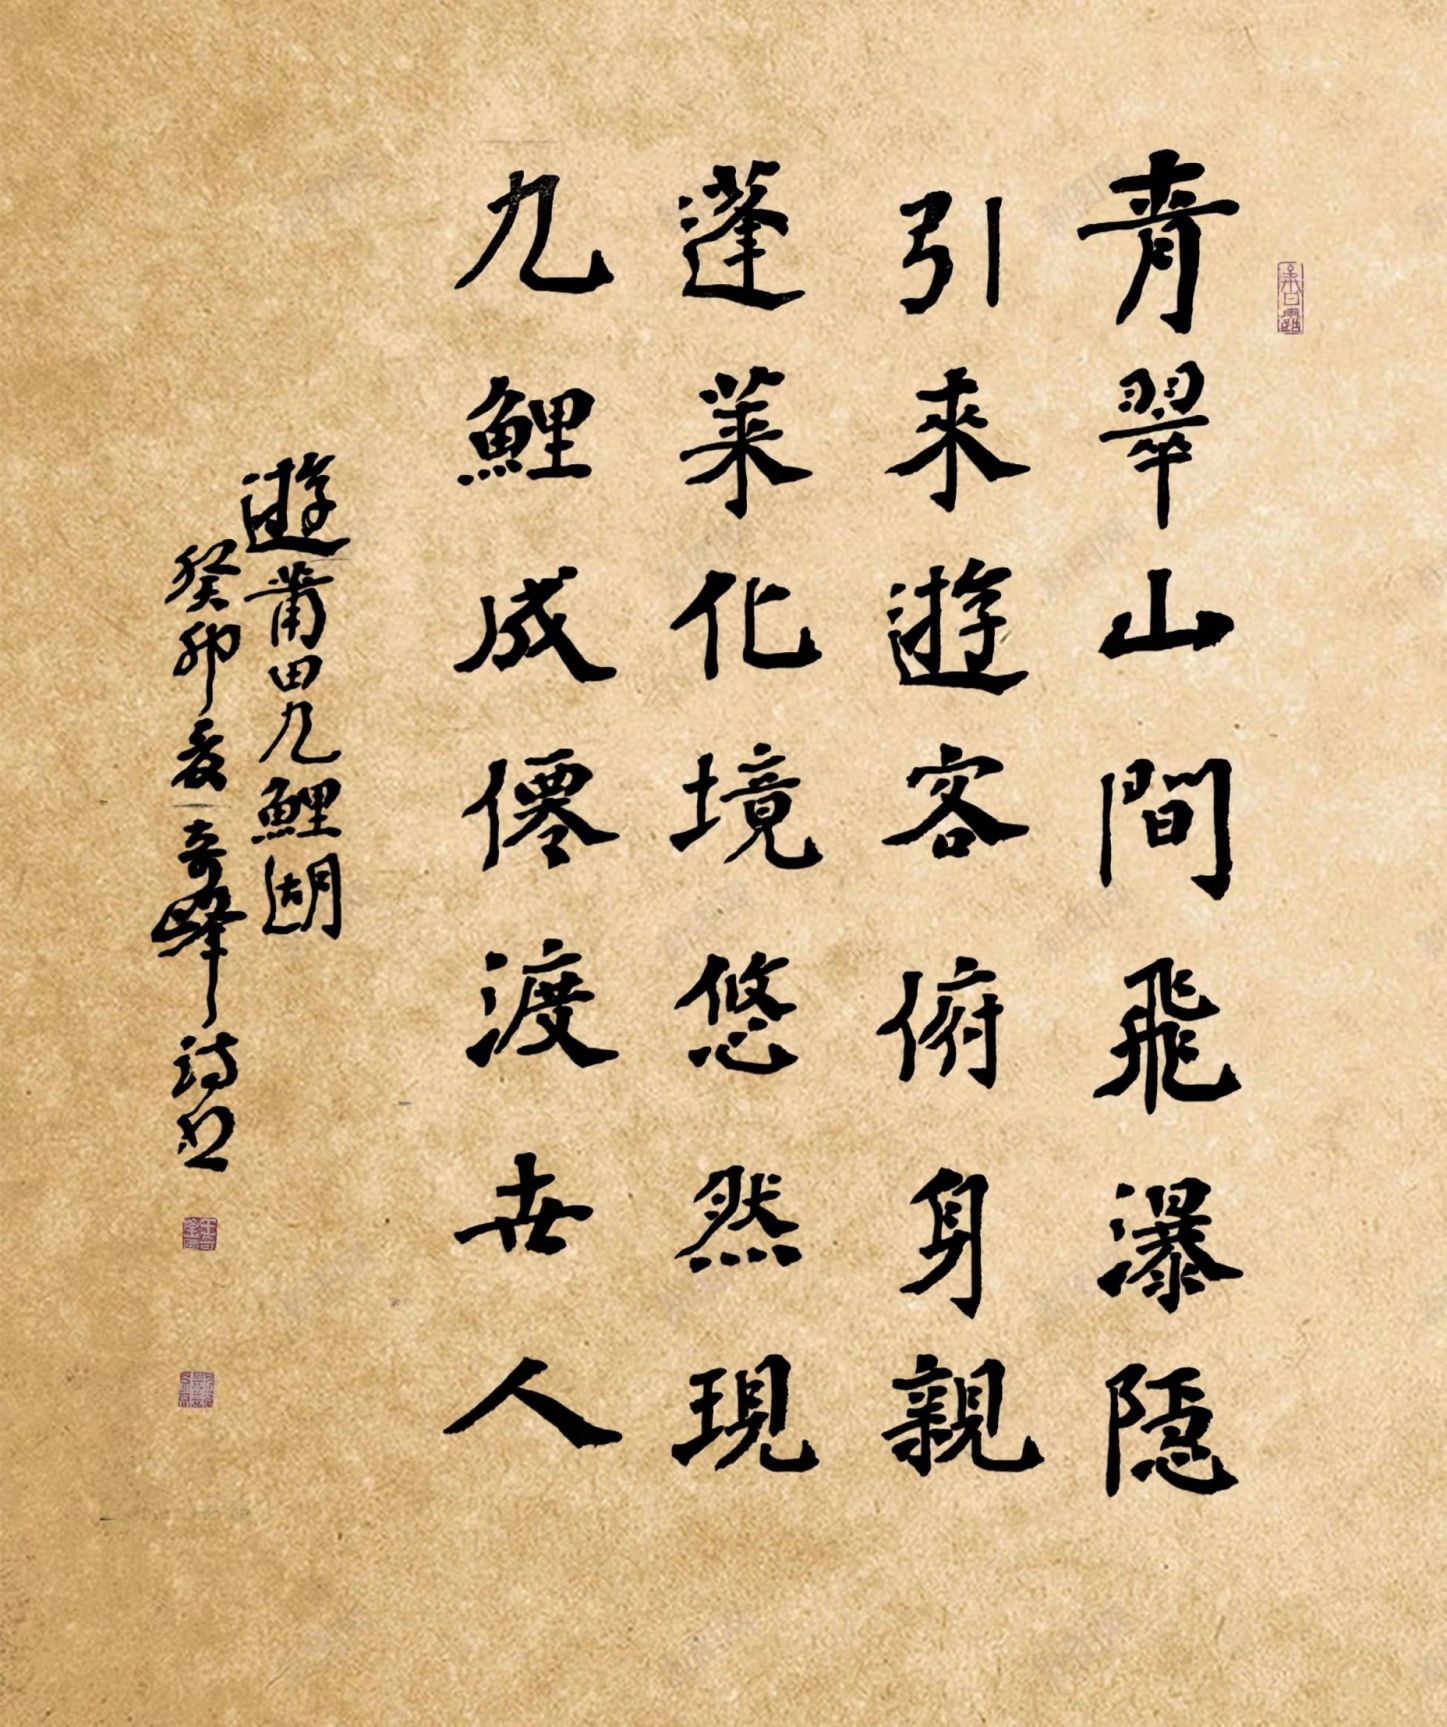 青翠山間飛瀑隱
引來遊客俯身親
蓬萊化境悠然現
九鯉成僊渡世人
遊莆田九鯉湖
癸卯夏奇峰詩書